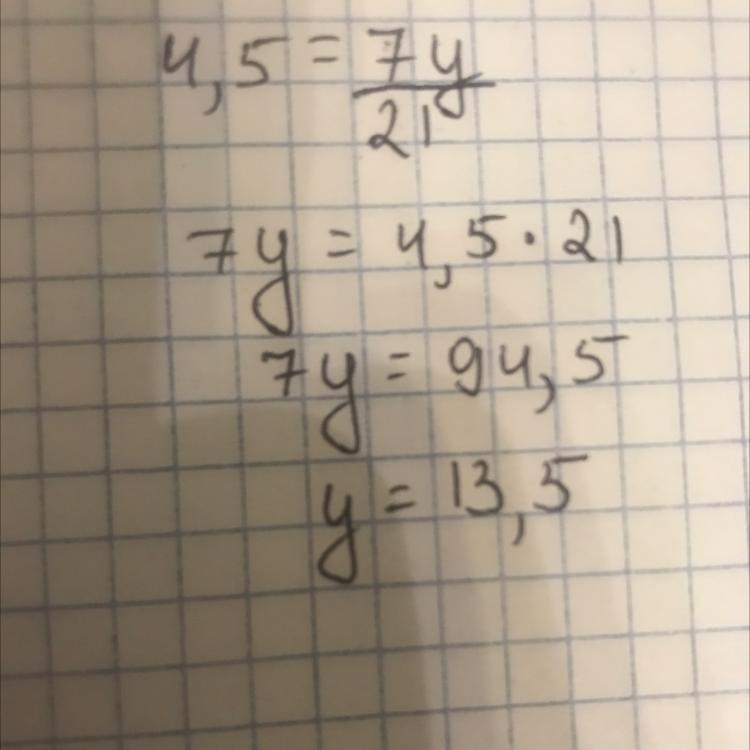 4,5 = 7y/21
7y = 4,5 · 21
7y = 94,5
y = 13,5